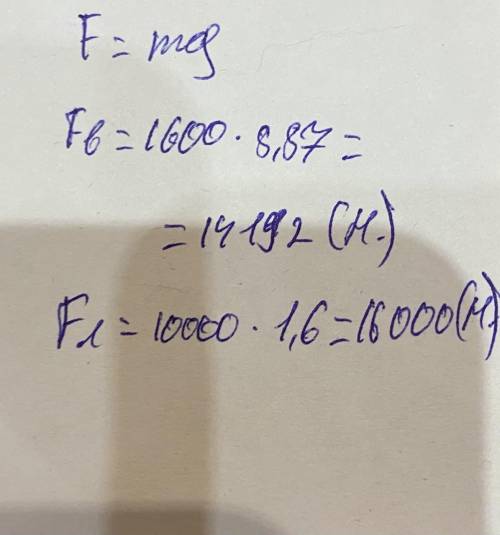 F = mg
Fв = 1600 · 8,87 =
= 14192 (Н.)
Fл = 10000 · 1,6 = 16000 (Н)